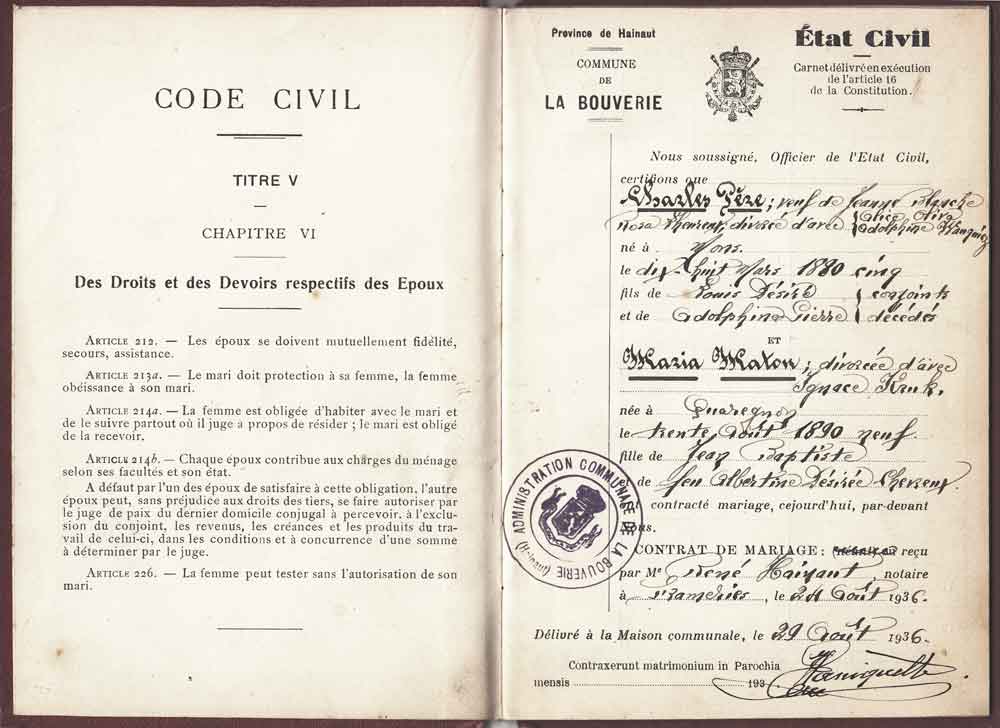 CODE CIVIL
TITRE V
CHAPITRE VI
Des Droits et des Devoirs respectifs des Epoux
ARTICLE 212. — Les époux se doivent mutuellement fidélité,
secours, assistance.
ARTICLE 213a. — Le mari doit protection à sa femme, la femme
obéissance à son mari.
ARTICLE 214a. — La femme est obligée d'habiter avec le mari et
de le suivre partout où il juge a propos de résider ; le mari est obligé
de la recevoir.
ARTICLE 214b. — Chaque époux contribue aux charges du ménage
selon ses facultés et son état.
A défaut par l'un des époux de satisfaire à cette obligation, l'autre
époux peut, sans préjudice aux droits des tiers, se faire autoriser par
le juge de paix du dernier domicile conjugal à percevoir, à l'exclu-
sion du conjoint, les revenus, les créances et les produits du tra-
vail de celui-ci, dans les conditions et à concurrence d'une somme
à déterminer par le juge.
ARTICLE 226. — La femme peut tester sans l'autorisation de son
mari.
Province de Hainaut
COMMUNE
DE
LA BOUVERIE
État Civil
Carnet délivré en exécution
de l'article 16
de la Constitution.
Nous soussigné, Officier de l'Etat Civil,
certifions que
Charles Père ; veuf de Jeanne Blanche
Rosa divorcé d'avec Alice
Adolphine
né à Mons
le dix-huit Mars 1880 cinq
fils de Louis Désiré conjoints
et de Adolphine Pierre décédés
ET
Maria Maton ; divorcée d'avec
Ignace Kruk
née à Quaregnon
le trente Août 1890 neuf
fille de Jean Baptiste
et de feu Albertine Désirée
contracté mariage, cejourd'hui, par-devant
Nous.
CONTRAT DE MARIAGE : reçu
par Me René , notaire
à Frameries, le 24 Août 1936.
ADMINISTRATION COMMUNALE DE LA BOUVERIE (Hainaut)
Délivré à la Maison communale, le 29 Août 1936.
Contraxerunt matrimonium in Parochia
mensis 193